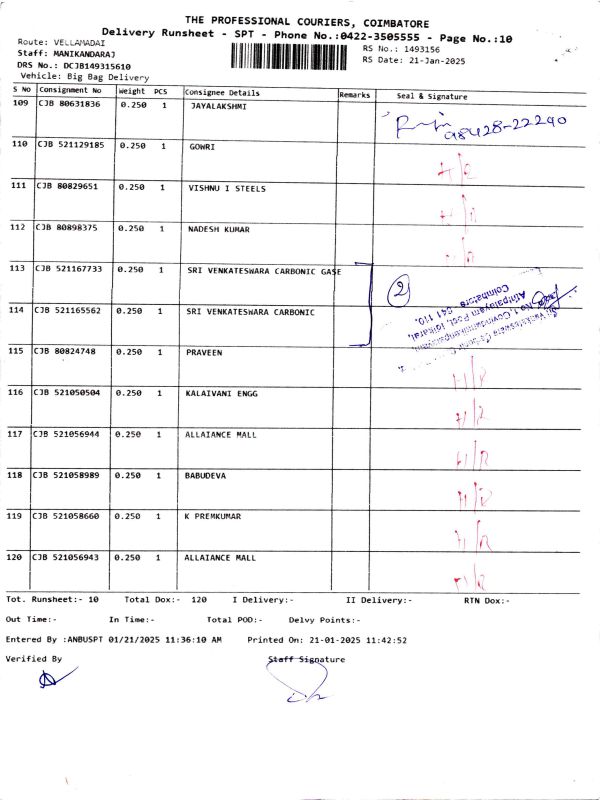 THE PROFESSIONAL COURIERS, COIMBATORE
Delivery Runsheet - SPT - Phone No.:0422-3505555 - Page No.:10
Route: VELLAMADAI
Staff: MANIKANDARAJ
DRS No.: DCJB149315610
Vehicle: Big Bag Delivery
RS No.: 1493156
RS Date: 21-Jan-2025
S No Consignment No Weight PCS Consignee Details Remarks Seal & Signature
109 CJB 80631836 0.250 1 JAYALAKSHMI
98428-22290
110 CJB 521129185 0.250 1 GOWRI
111 CJB 80829651 0.250 1 VISHNU I STEELS
112 CJB 80898375 0.250 1 NADESH KUMAR
113 CJB 521167733 0.250 1 SRI VENKATESWARA CARBONIC GASE
2
114 CJB 521165562 0.250 1 SRI VENKATESWARA CARBONIC
Coimbatore 641 110.
115 CJB 80824748 0.250 1 PRAVEEN
116 CJB 521050504 0.250 1 KALAIVANI ENGG
117 CJB 521056944 0.250 1 ALLAIANCE MALL
118 CJB 521058989 0.250 1 BABUDEVA
119 CJB 521058660 0.250 1 K PREMKUMAR
120 CJB 521056943 0.250 1 ALLAIANCE MALL
Tot. Runsheet:- 10 Total Dox:- 120 I Delivery:- II Delivery:- RTN Dox:-
Out Time:- In Time:- Total POD:- Delvy Points:-
Entered By :ANBUSPT 01/21/2025 11:36:10 AM Printed On: 21-01-2025 11:42:52
Verified By Staff Signature